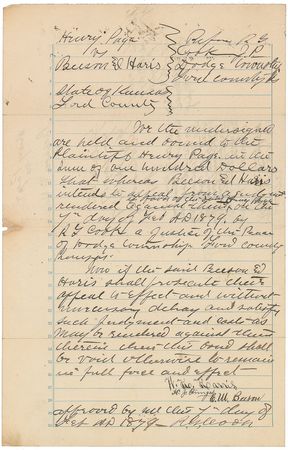 Henry Page
vs
Beeson & Haris
Before R G
Cook J P
Dodge Township
Ford County Ks
State of Kansas
Ford County
We the undersigned
are held and bound to the
Plaintiff Henry Page in the
sum of one hundred Dollars
that whereas Beeson & Haris
intends to appeal from a judgment
rendered against them on the
7th day of Feb AD 1879, by
R G Cook a Justice of the Peace
of Dodge Township Ford County
Kansas
Now if the said Beeson &
Haris shall prosecute their
appeal to effect and without
unnecessary delay and satisfy
such judgement and costs as
may be rendered against them
therein then this bond shall
be void otherwise to remain
in full force and effect
W. H. Harris
C. M. Beeson
approved by me this 7th day of
Feb AD 1879 R G Cook